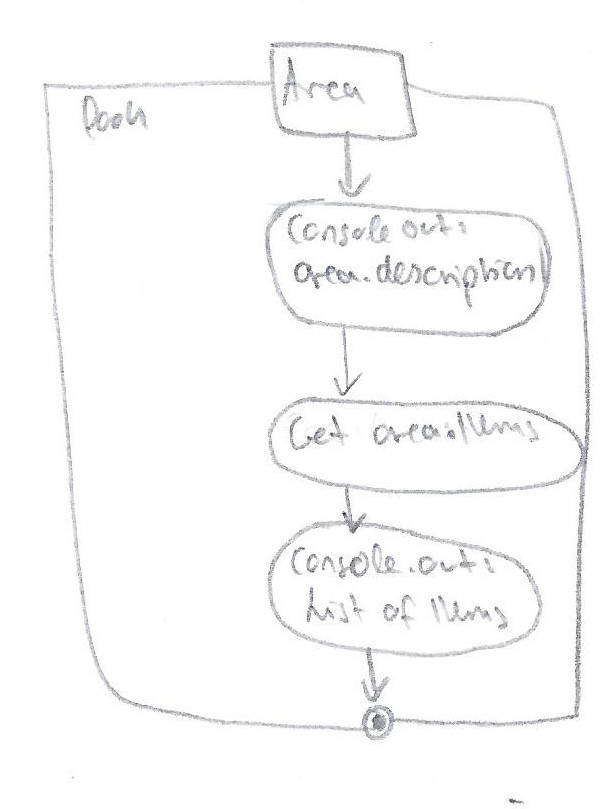 Area
Console out:
area.description
Get area.Items
Console.out:
List of Items